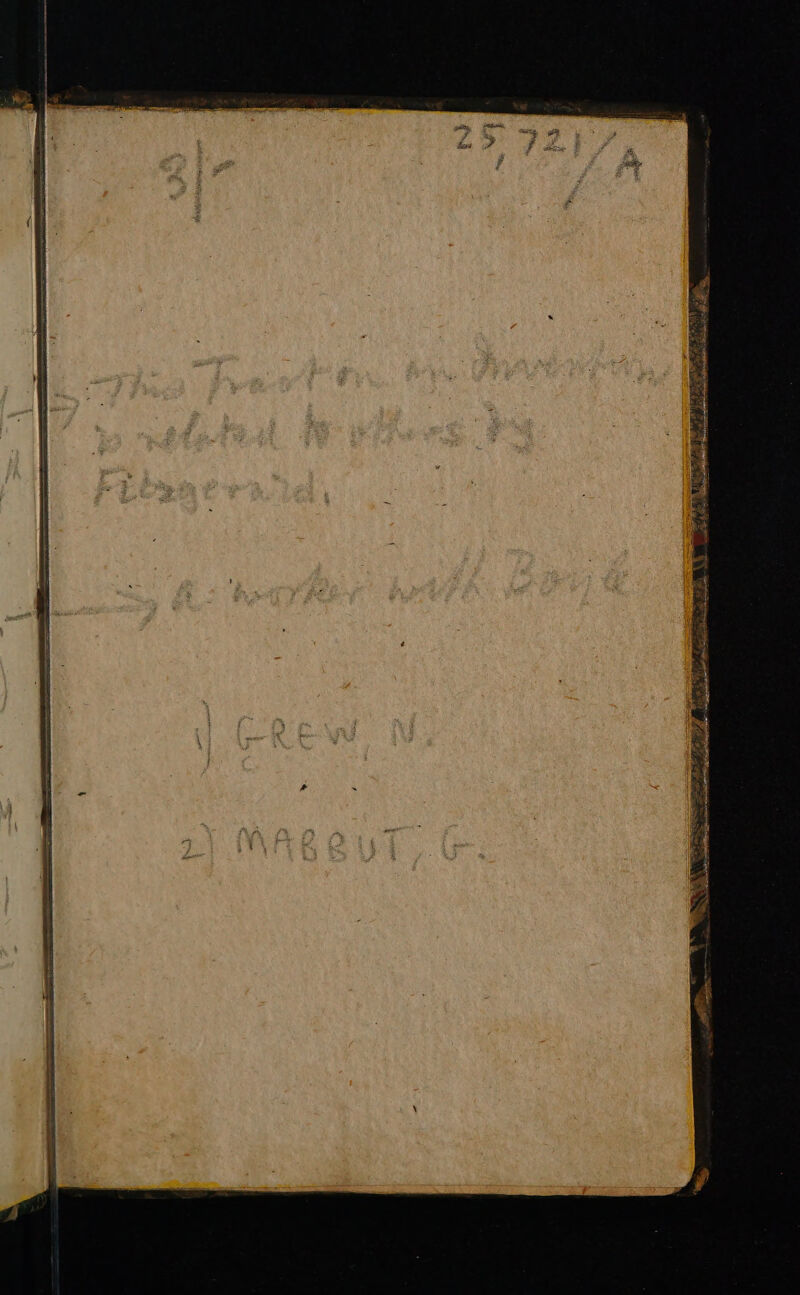 25,721/A
3/-
This Tract on an Invention
is related to others by
Fitzgerald.
a worker with Boyle
1) GREW, N.
2) MABBUT, G.